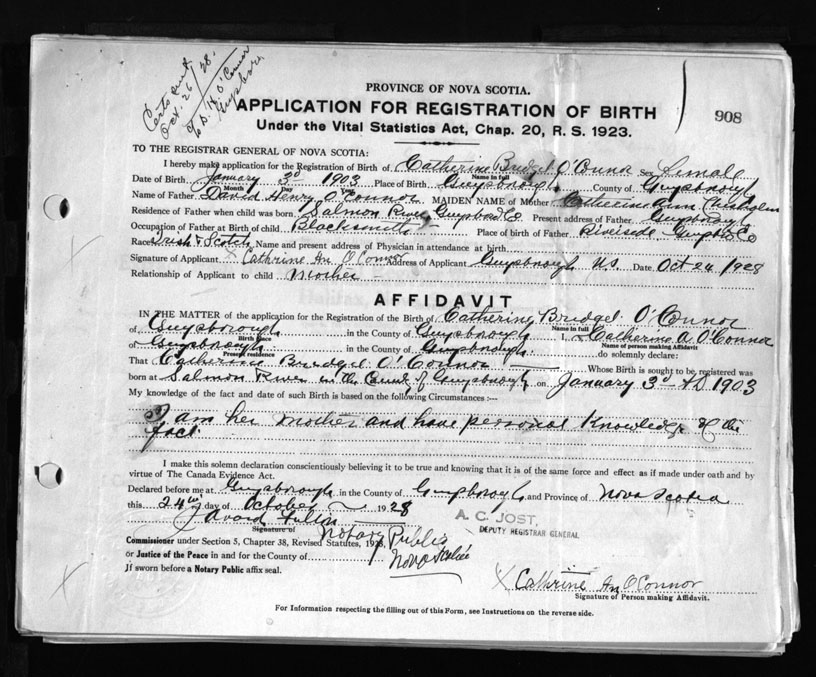 Certs sent
Oct. 26/28.
To D. H. O'Connor
Guysboro
PROVINCE OF NOVA SCOTIA.
APPLICATION FOR REGISTRATION OF BIRTH
908
Under the Vital Statistics Act, Chap. 20, R. S. 1923.
TO THE REGISTRAR GENERAL OF NOVA SCOTIA:
I hereby make application for the Registration of Birth of Catherine Bridget O'Connor Sex Female
Name in full
Date of Birth January 3rd 1903 Place of Birth Guysborough County of Guysborough
Month Day
Name of Father David Henry O'Connor MAIDEN NAME of Mother Catherine Ann Chisholm
Residence of Father when child was born Salmon River Guysboro Co Present address of Father Guysborough
Occupation of Father at Birth of Child Blacksmith Place of birth of Father Riverside Guysb Co
Race Irish & Scotch Name and present address of Physician in attendance at birth
Signature of Applicant X Cathrine An O'Connor Address of Applicant Guysborough N.S. Date Oct 24/1928
Relationship of Applicant to child Mother
AFFIDAVIT
IN THE MATTER of the application for the Registration of the Birth of Catherine Bridget O'Connor
Name in full
of Guysborough in the County of Guysborough I, Catherine A. O'Connor
Birth Place Name of person making Affidavit
of Guysborough in the County of Guysborough do solemnly declare:
Present residence
That Catherine Bridget O'Connor Whose Birth is sought to be registered was
born at Salmon River in the County of Guysborough on January 3rd A D 1903
My knowledge of the fact and date of such Birth is based on the following Circumstances :—
I am her mother and have personal knowledge of the
fact.
I make this solemn declaration conscientiously believing it to be true and knowing that it is of the same force and effect as if made under oath and by
virtue of The Canada Evidence Act.
Declared before me at Guysborough in the County of Guysborough and Province of Nova Scotia
this 24th day of October 1928
A. C. JOST,
DEPUTY REGISTRAR GENERAL
Signature of Notary Public
Commissioner under Section 5, Chapter 38, Revised Statutes, 1923,
or Justice of the Peace in and for the County of Nova Scotia
If sworn before a Notary Public affix seal.
X Cathrine An O'Connor
Signature of Person making Affidavit.
For Information respecting the filling out of this Form, see Instructions on the reverse side.